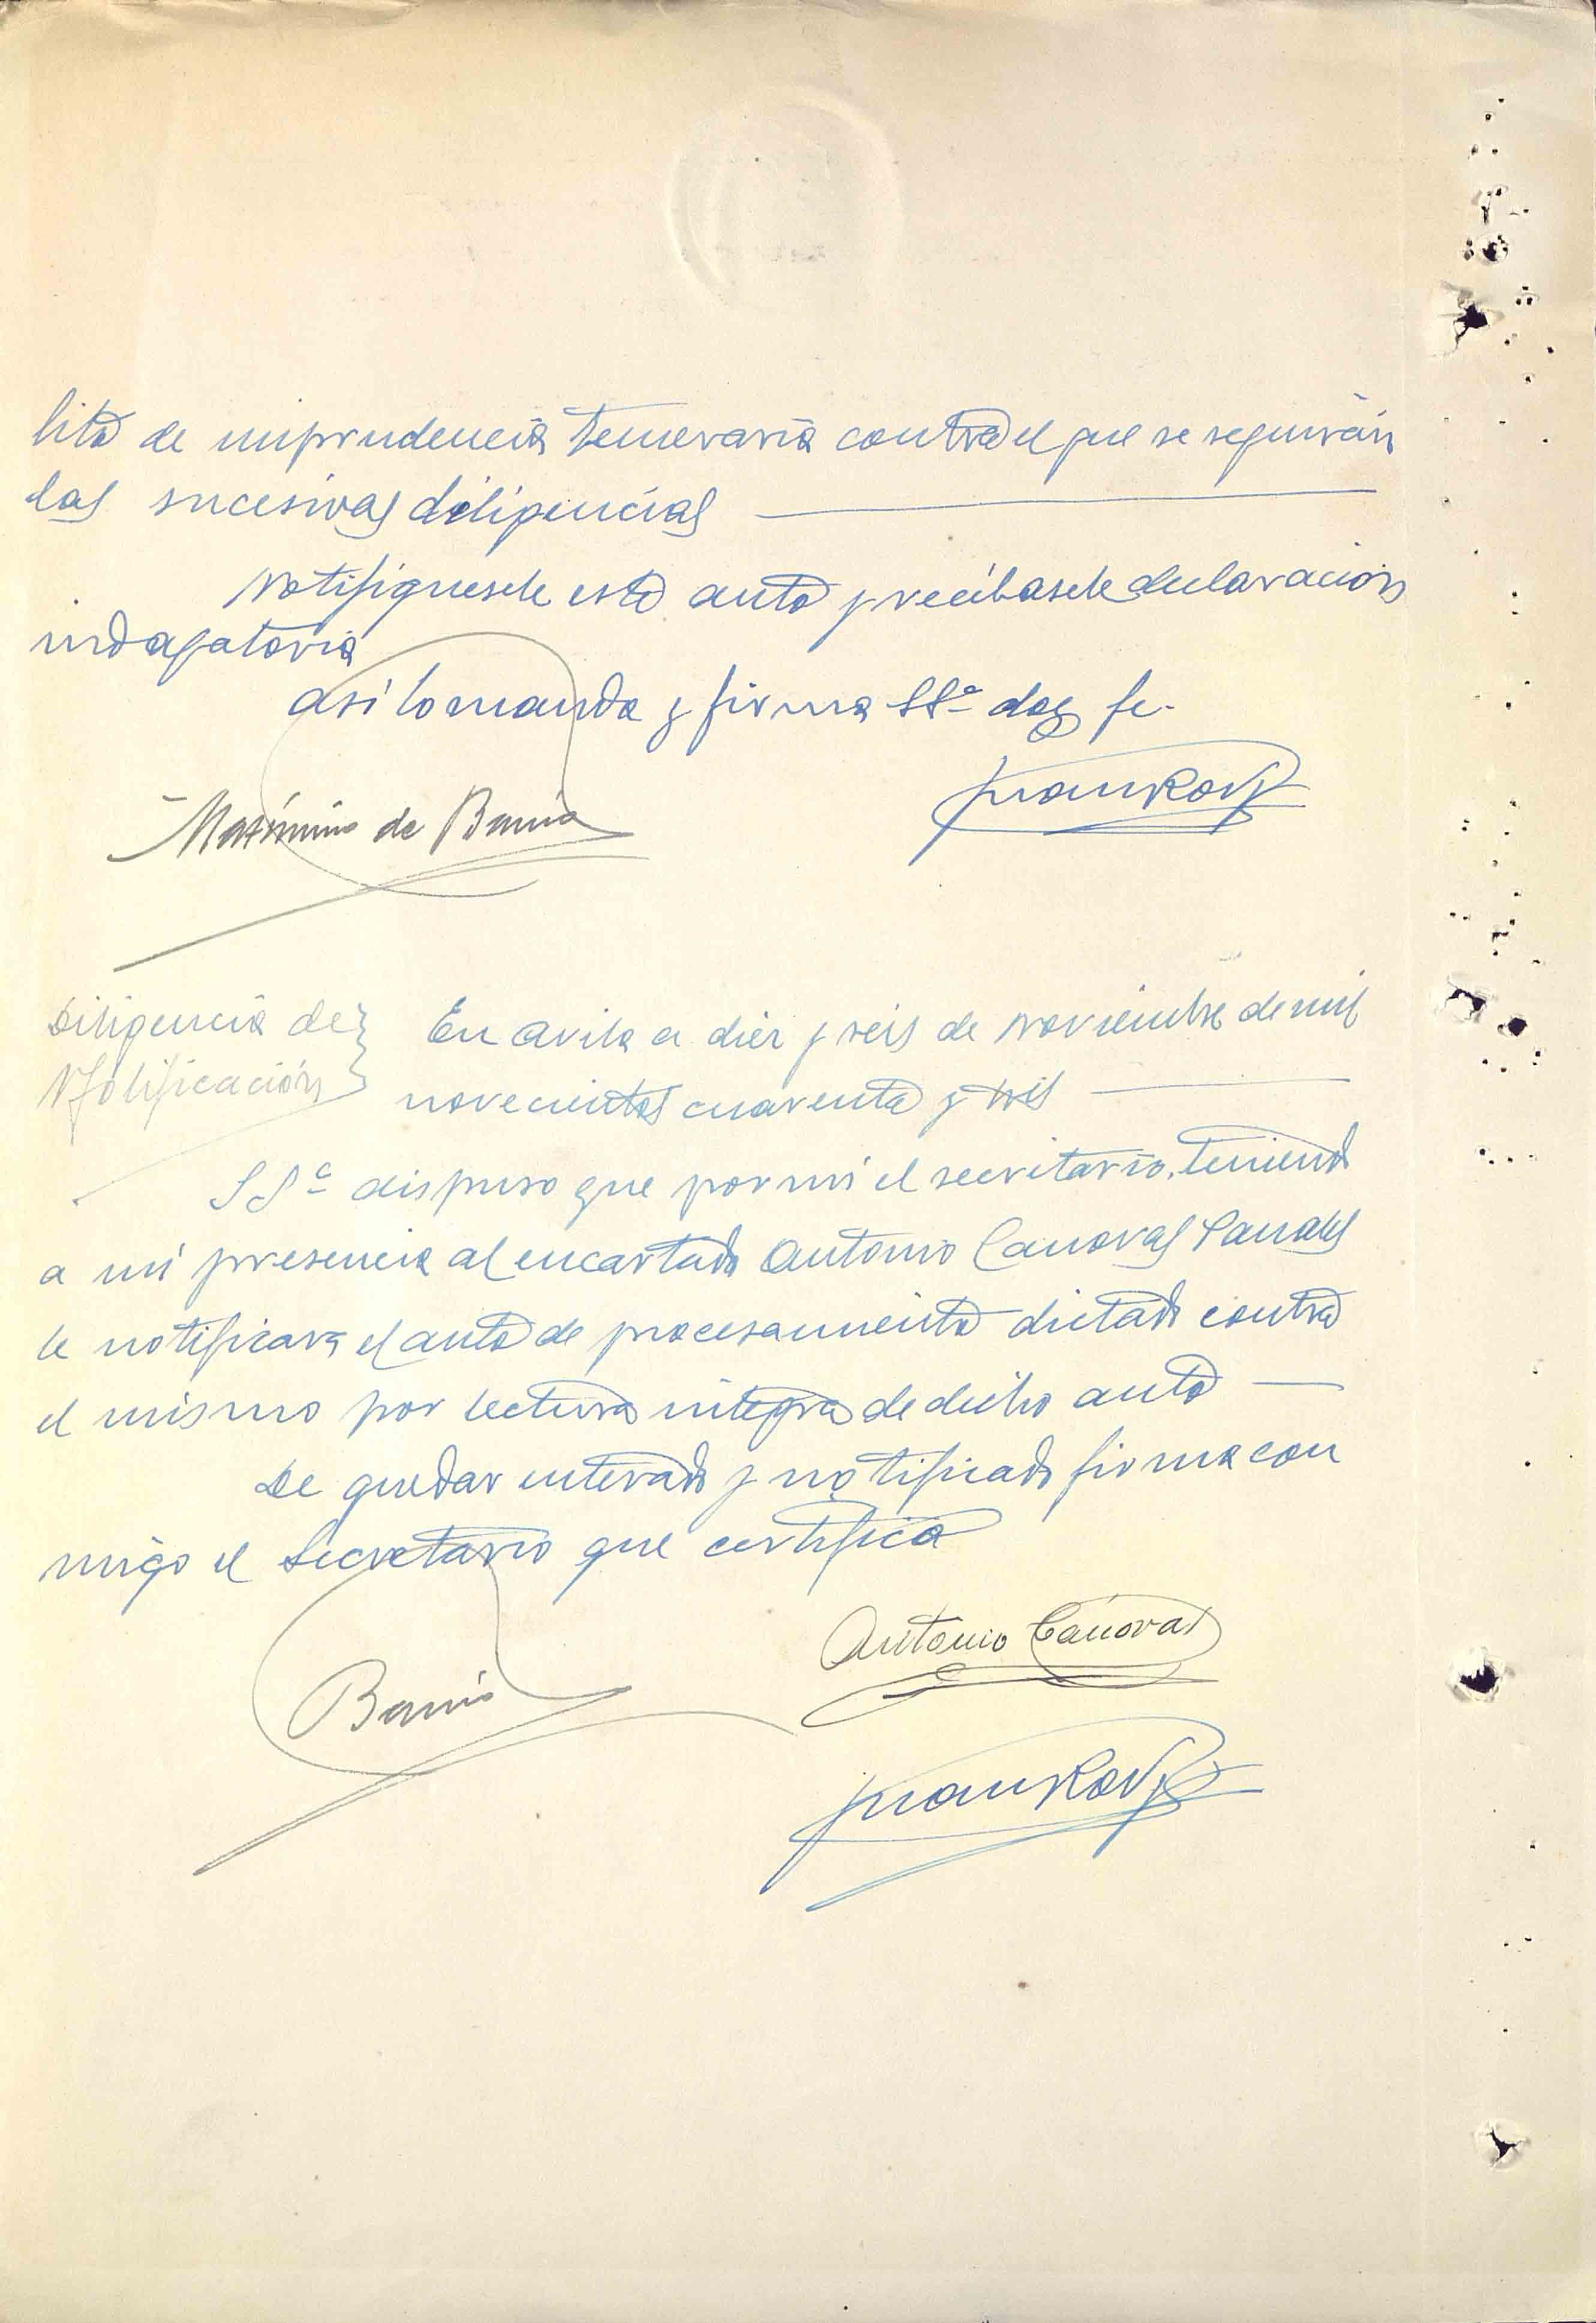 lito de imprudencia temeraria contra el que se seguirán
las sucesivas diligencias
Notifíquesele este auto y recíbasele declaración
indagatoria
Asi lo manda y firma SSª doy fe.
Maximino de
Diligencia de
Notificación
En Avila a diez y seis de noviembre de mil
novecientos cuarenta y tres
SSª dispuso que por mí el secretario, teniendo
a mi presencia al encartado Antonio Canovas Canales
le notificara el auto de procesamiento dictado contra
el mismo por lectura integra de dicho auto
De quedar enterado y notificado firma con
migo el Secretario que certifica
Antonio Cánovas